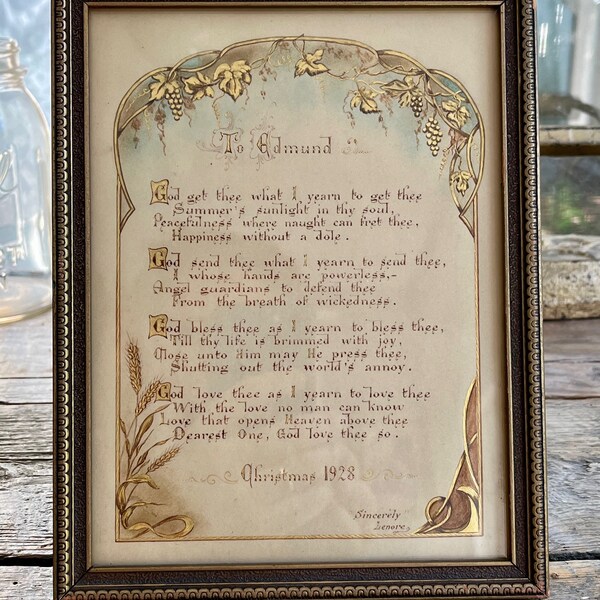 To Edmund
God get thee what I yearn to get thee
Summer's sunlight in thy soul,
Peacefulness where naught can fret thee,
Happiness without a dole.
God send thee what I yearn to send thee,
I whose hands are powerless,-
Angel guardians to defend thee
From the breath of wickedness.
God bless thee as I yearn to bless thee,
Till thy life is brimmed with joy,
Close unto Him may He press thee,
Shutting out the world's annoy.
God love thee as I yearn to love thee
With the love no man can know
Love that opens Heaven above thee
Dearest One, God love thee so.
Christmas 1928
Sincerely
Lenore